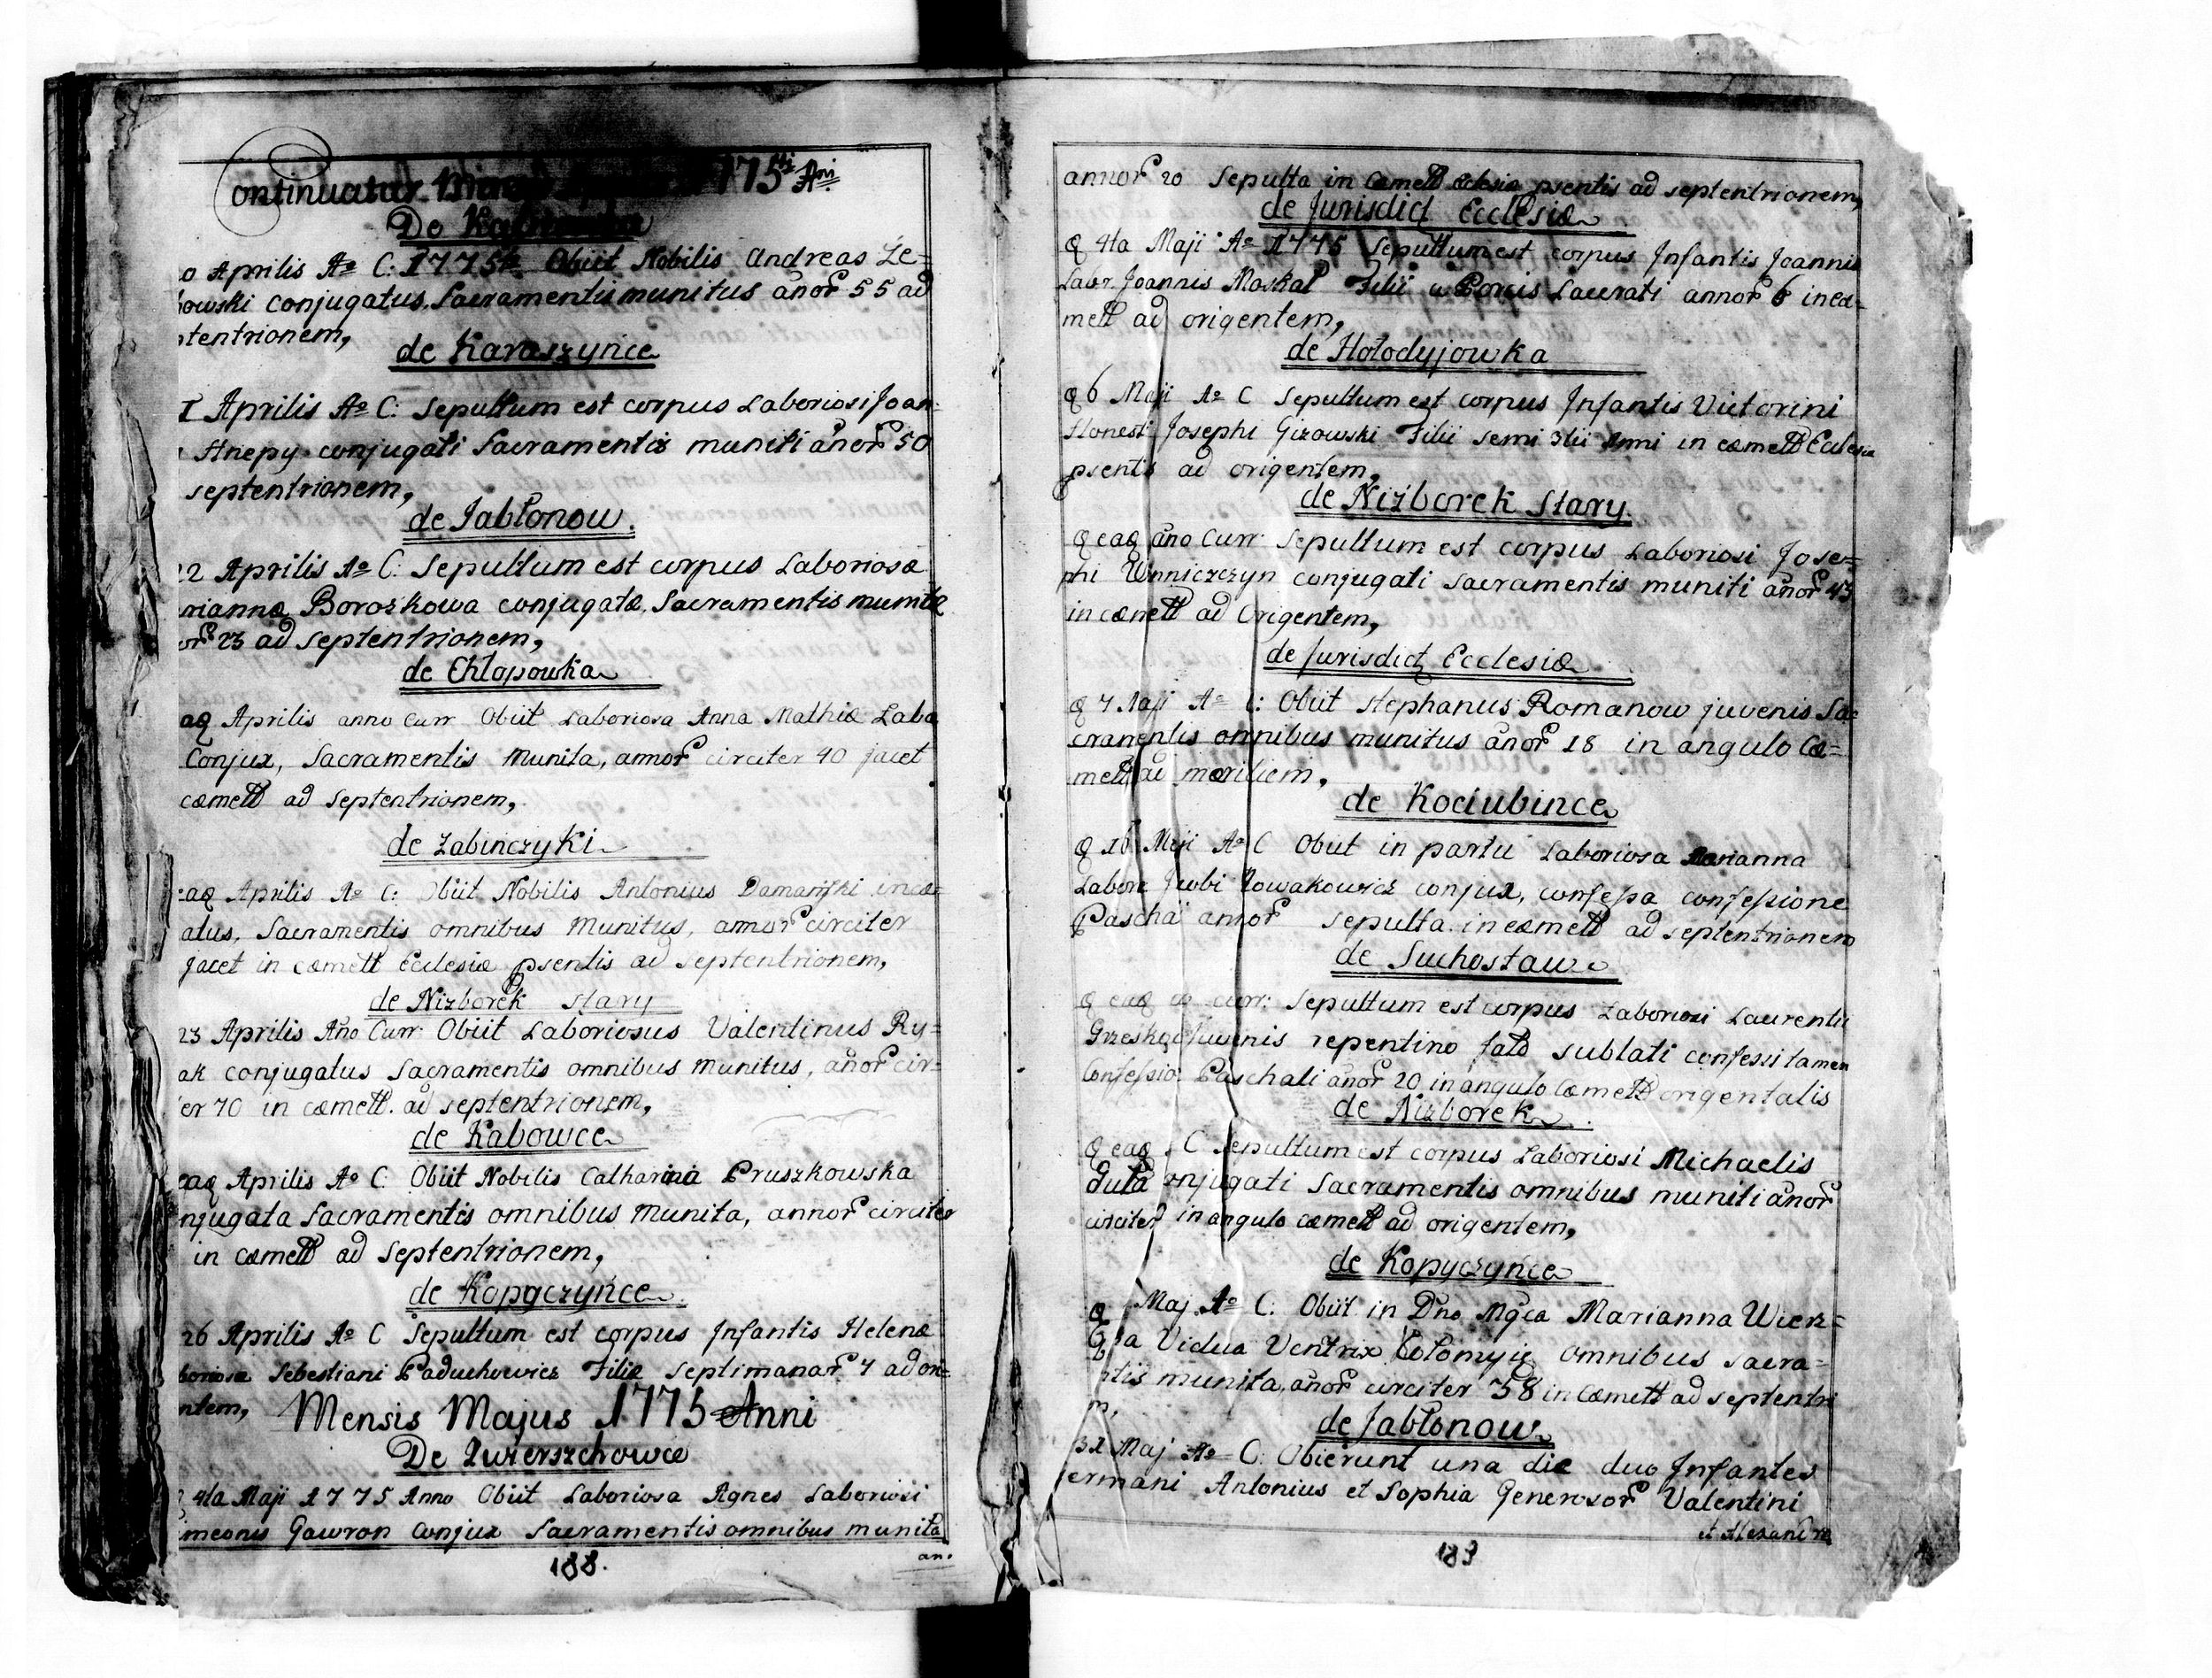 Continuatur 1775ti Ani
De
0 Aprilis Ao C: 1775ti Obiit Nobilis Andreas Ze=
bowski conjugatus, Sacramentis munitus anor 55 ad
ptentrionem,
de Karaszynce
1 Aprilis Ao C: Sepultum est corpus Laboriosi Joan
Hnepy conjugati Sacramentis muniti anor 50
septentrionem,
de Jabłonow.
22 Aprilis Ao C: Sepultum est corpus Laboriosæ
riannæ Boroszkowa conjugatæ, Sacramentis munitæ
or 23 ad septentrionem,
de Chłopowka
aq Aprilis anno Curr Obiit Laboriosa Anna Mathiæ Laba
Conjux, Sacramentis Munita, annor circiter 40 jacet
cœmett ad septentrionem,
de Zabinczyki
eaq Aprilis Ao C: Obiit Nobilis Antonius Damański incæ=
atus, Sacramentis omnibus Munitus, annor circiter
Jacet in cœmett Ecclesiæ psentis ad septentrionem,
de Nizborek stary
23 Aprilis Ano Curr: Obiit Laboriosus Valentinus Ry=
ak conjugatus Sacramentis omnibus munitus, anor cir=
er 70 in cœmett. ad septentrionem,
de Kabowce
eaq Aprilis Ao C: Obiit Nobilis Catharina Pruszkowska
njugata Sacramentis omnibus Munita, annor circiter
in cœmett ad septentrionem,
de Kopyczyńce
26 Aprilis Ao C Sepultum est corpus Infantis Helenæ
boriosæ Sebestiani Paduchowicz Filiæ septimanar 4 ad ori=
ntem, Mensis Majus 1775 Anni
De Zwierszchowce
4ta Maji 1775 Anno Obiit Laboriosa Agnes Laboriosi
imeonis Gawron Conjux Sacramentis omnibus munita
188.
an:
annor 20 Sepulta in cœmett Eclesiæ psentis ad septentrionem,
de Jurisdict Ecclesiæ
Q 4ta Maji Ao 1775 Sepultum est corpus Infantis Joannis
Labor Joannis Moskal Filii a Porcis Lacerati annor 6 in cæ=
mett ad origentem,
de Hołodyjowka
Q 6 Maji Ao C Sepultum est corpus Infantis Victorini
Honesti Josephi Gizowski Filii semi 3tii Anni in cœmett Eclesiæ
psentis ad origentem,
de Niżborek stary.
Q eaq ano Curr: Sepultum est corpus Laboriosi Jose=
phi Winniczczyn conjugati Sacramentis muniti anor 43
in cœmett ad Origentem,
de Jurisdict Ecclesiæ
Q 7 Maji Ao C: Obiit Stephanus Romanow juvenis Sa=
cramentis omnibus munitus anor 18 in angulo Cæ=
mett ad meridiem,
de Kociubince
Q 16 Maji Ao C Obiit in partu Laboriosa Marianna
Labore Jacobi Nowakowicz conjux, confessa confessione
Paschali annor sepulta in cœmett ad septentrionem
de Suchostaw
Q eaq curr: Sepultum est corpus Laboriosi Laurentii
Grzesko Juvenis repentino fato sublati confessi tamen
Confessio: Paschali anor 20 in angulo Cœmett origentalis
de Nizborek
Q eaq C Sepultum est corpus Laboriosi Michaelis
Duta conjugati Sacramentis omnibus muniti anor
circiter in angulo cœmett ad origentem,
de Kopyczyńce
Q Maj. Ao C: Obiit in Dno Mgca Marianna Wierz=
Vidua Ventrix Colomyig omnibus sacra=
ntis munita, anor circiter 58 in Cœmett ad septentri
m,
de Jabłonow
31 Maj Ao C: Obierunt una die duo Infantes
ermani Antonius et Sophia Generosor Valentini
et Alexandræ
189